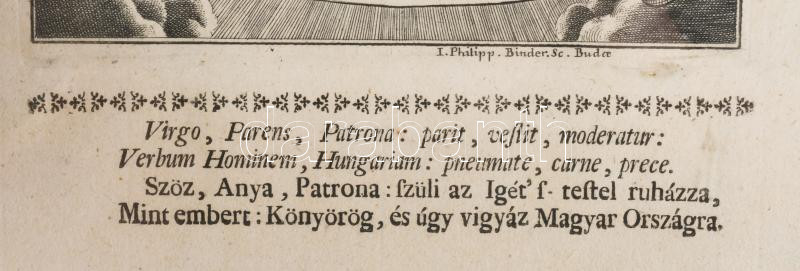 I. Philipp. Binder. Sc. Budæ
Virgo, Parens, Patrona: parit, veſtit, moderatur:
Verbum Hominem, Hungariam: pneumate, carne, prece.
Szöz, Anya, Patrona: ſzüli az Igét' ſ- teſtel ruházza,
Mint embert: Könyörög, és úgy vigyáz Magyar Országra.
darabanth